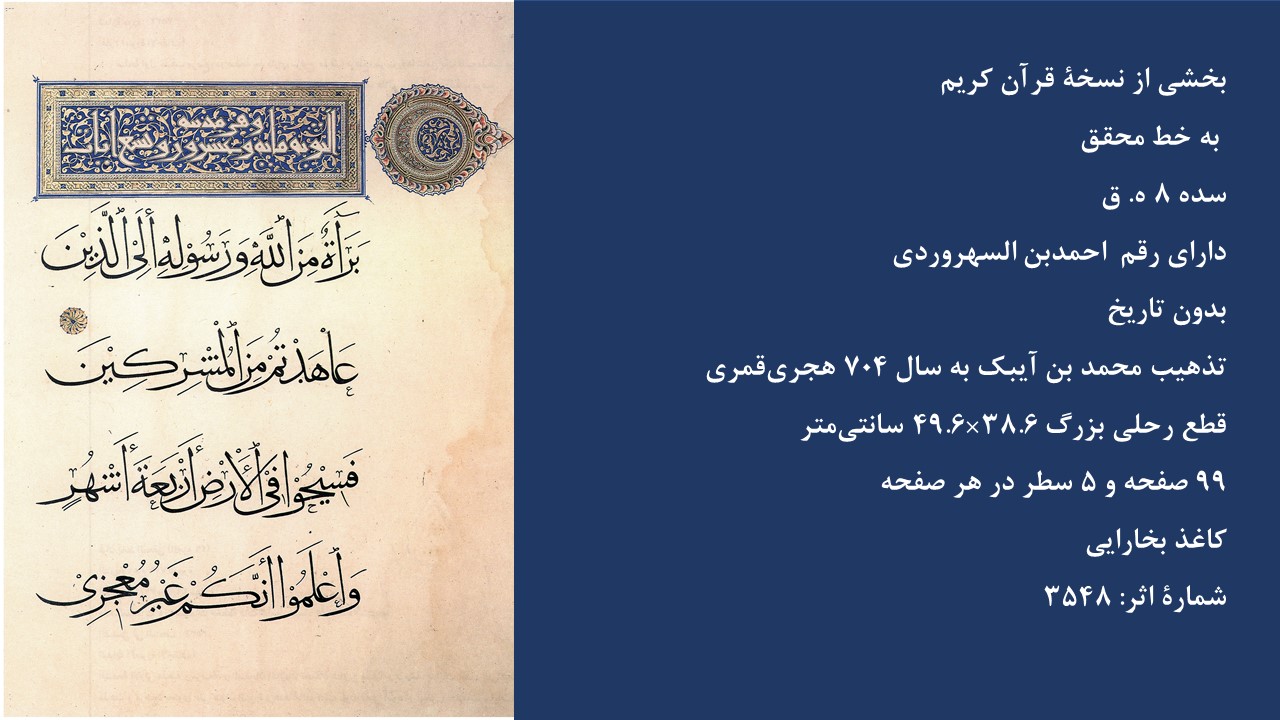 بخشی از نسخهٔ قرآن کریم
به خط محقق
سده ۸ ه. ق
دارای رقم احمدبن السهروردی
بدون تاریخ
تذهیب محمد بن آیبک به سال ۷۰۴ هجری‌قمری
قطع رحلی بزرگ ۳۸.۶×۴۹.۶ سانتی‌متر
۹۹ صفحه و ۵ سطر در هر صفحه
کاغذ بخارایی
شمارهٔ اثر: ۳۵۴۸
بَرَآءَةٌ مِنَ ٱللَّهِ وَرَسُولِهِ إِلَى ٱلَّذِينَ
عَاهَدْتُمْ مِنَ ٱلْمُشْرِكِينَ
فَسِيحُوا فِى ٱلْأَرْضِ أَرْبَعَةَ أَشْهُرٍ
وَٱعْلَمُوا أَنَّكُمْ غَيْرُ مُعْجِزِى